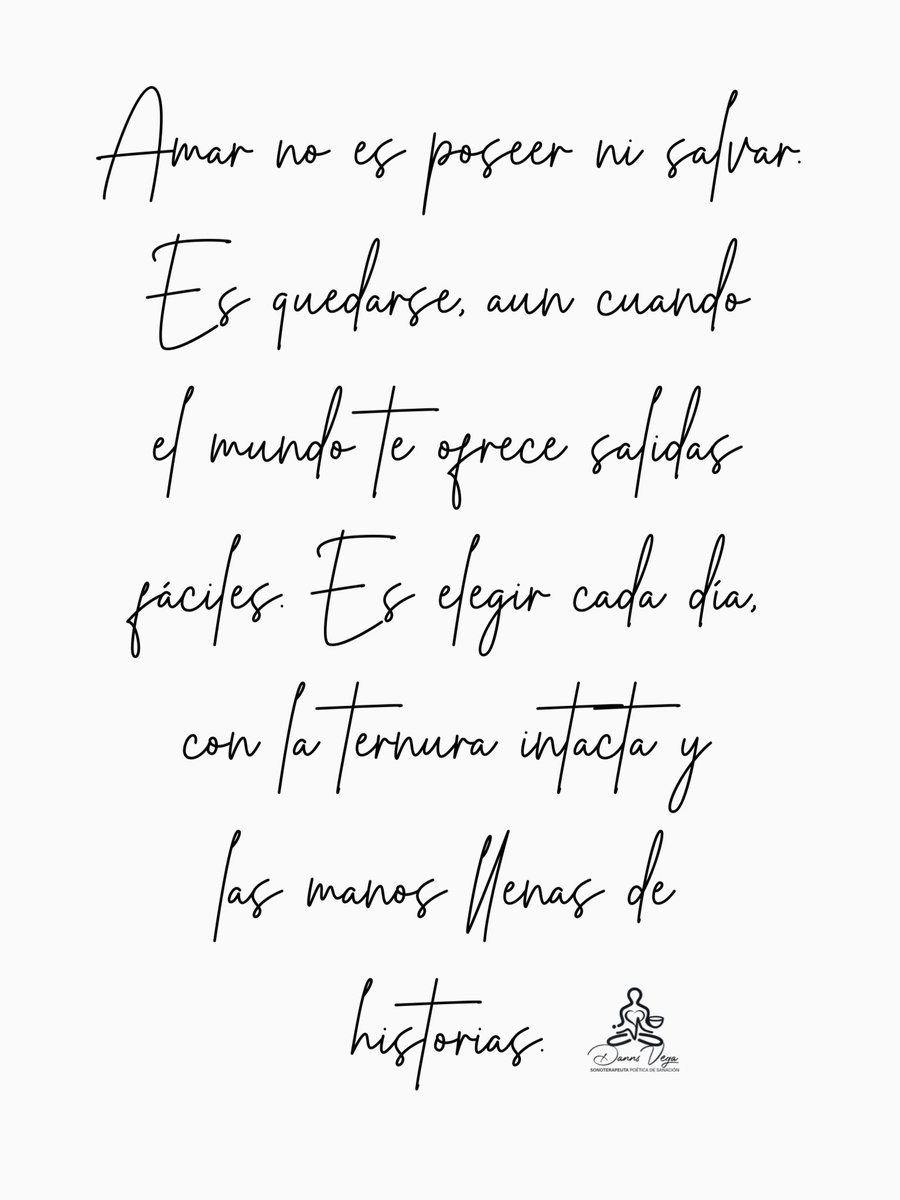 Amar no es poseer ni salvar.
Es quedarse, aun cuando
el mundo te ofrece salidas
fáciles. Es elegir cada día,
con la ternura intacta y
las manos llenas de
historias.
Danns Vega
SONOTERAPEUTA POÉTICA DE SANACIÓN